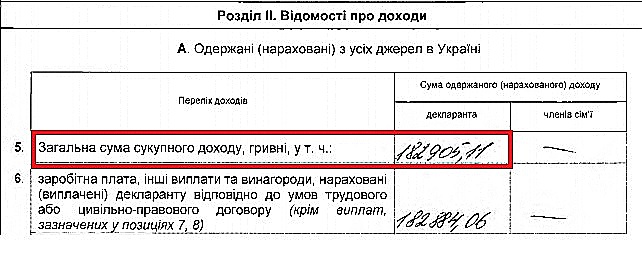 Розділ II. Відомості про доходи
А. Одержані (нараховані) з усіх джерел в Україні
Перелік доходів
Сума одержаного (нарахованого) доходу
декларанта
членів сім'ї
5. Загальна сума сукупного доходу, гривні, у т. ч.: 182905,11 —
6. заробітна плата, інші виплати та винагороди, нараховані
(виплачені) декларанту відповідно до умов трудового
або цивільно-правового договору (крім виплат,
зазначених у позиціях 7, 8) 182884,06 —